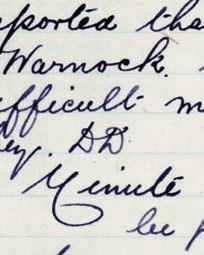 eported tha
Warnock.
ifficult m
ey. DD
Minute
be p